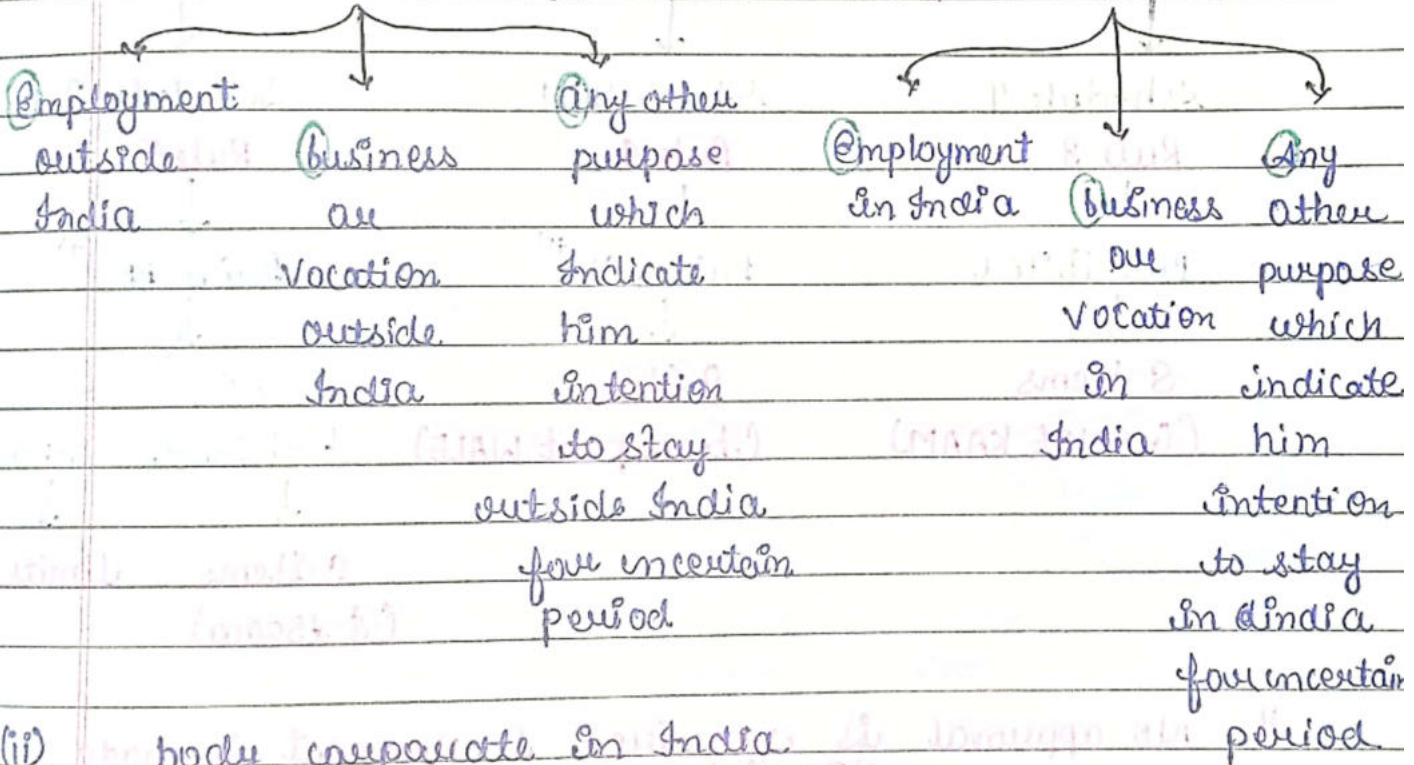 Employment
outside
India
business
or
vocation
outside
India
any other
purpose
which
Indicate
him
intention
to stay
outside India
for uncertain
period
Employment
in India
business
or
vocation
in
India
Any
other
purpose
which
indicate
him
intention
to stay
in india
for uncertain
period
(ii) body corporate in India